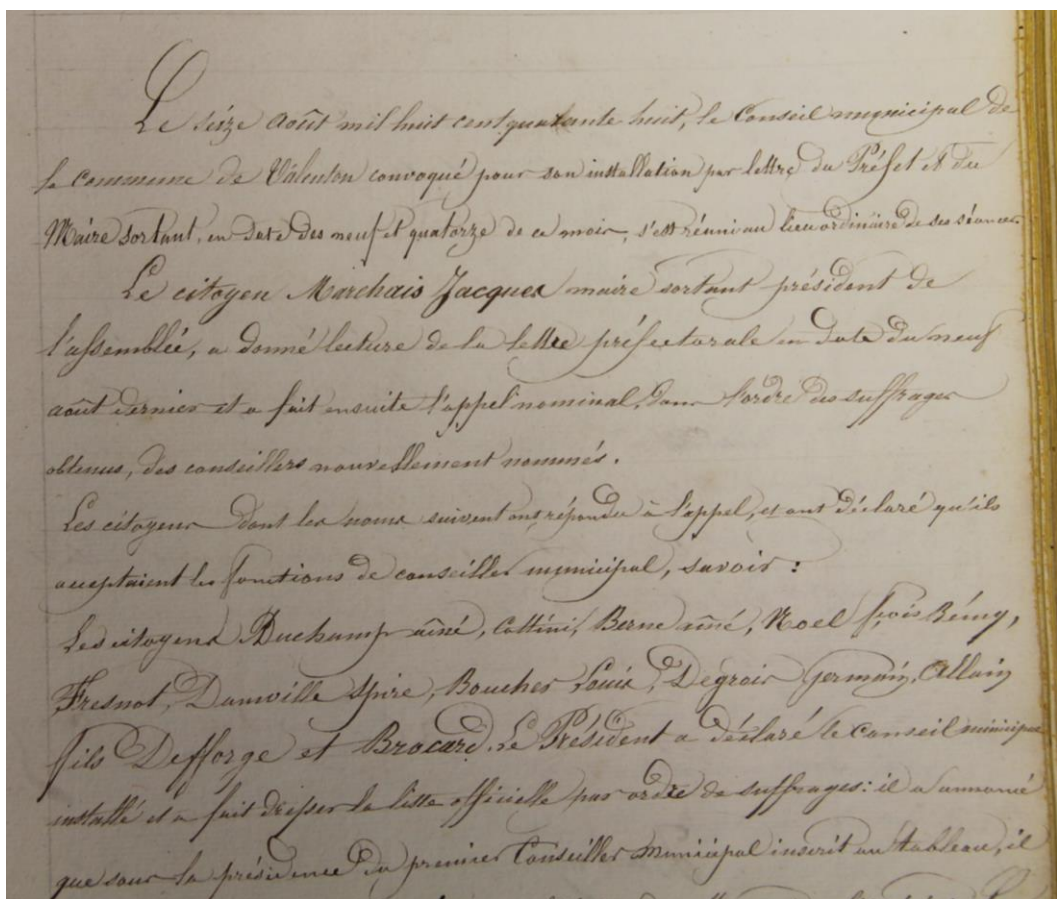 Le seize août mil huit cent quarante-huit, le Conseil municipal de
la Commune de Valenton convoqué pour son installation par lettre du Préfet et du
Maire sortant, en date des neuf et quatorze de ce mois, s'est réuni au lieu ordinaire de ses séances.
Le citoyen Marchais Jacques maire sortant président de
l'assemblée, a donné lecture de la lettre préfectorale en date du neuf
août dernier et a fait ensuite l'appel nominal, dans l'ordre des suffrages
obtenus, des conseillers nouvellement nommés.
Les citoyens dont les noms suivent ont répondu à l'appel, et ont déclaré qu'ils
acceptaient les fonctions de conseiller municipal, savoir :
Les citoyens Duchamp aîné, Cottini, Berne aîné, Noel fçois Rémy,
Fresnot, Damville Spire, Boucher Louis, Degrois Germain, Allain
fils Defforge et Brocard. Le Président a déclaré le conseil municipal
installé et a fait dresser la liste officielle par ordre de suffrages : il a annoncé
que sous la présidence du premier Conseiller Municipal inscrit au tableau, il